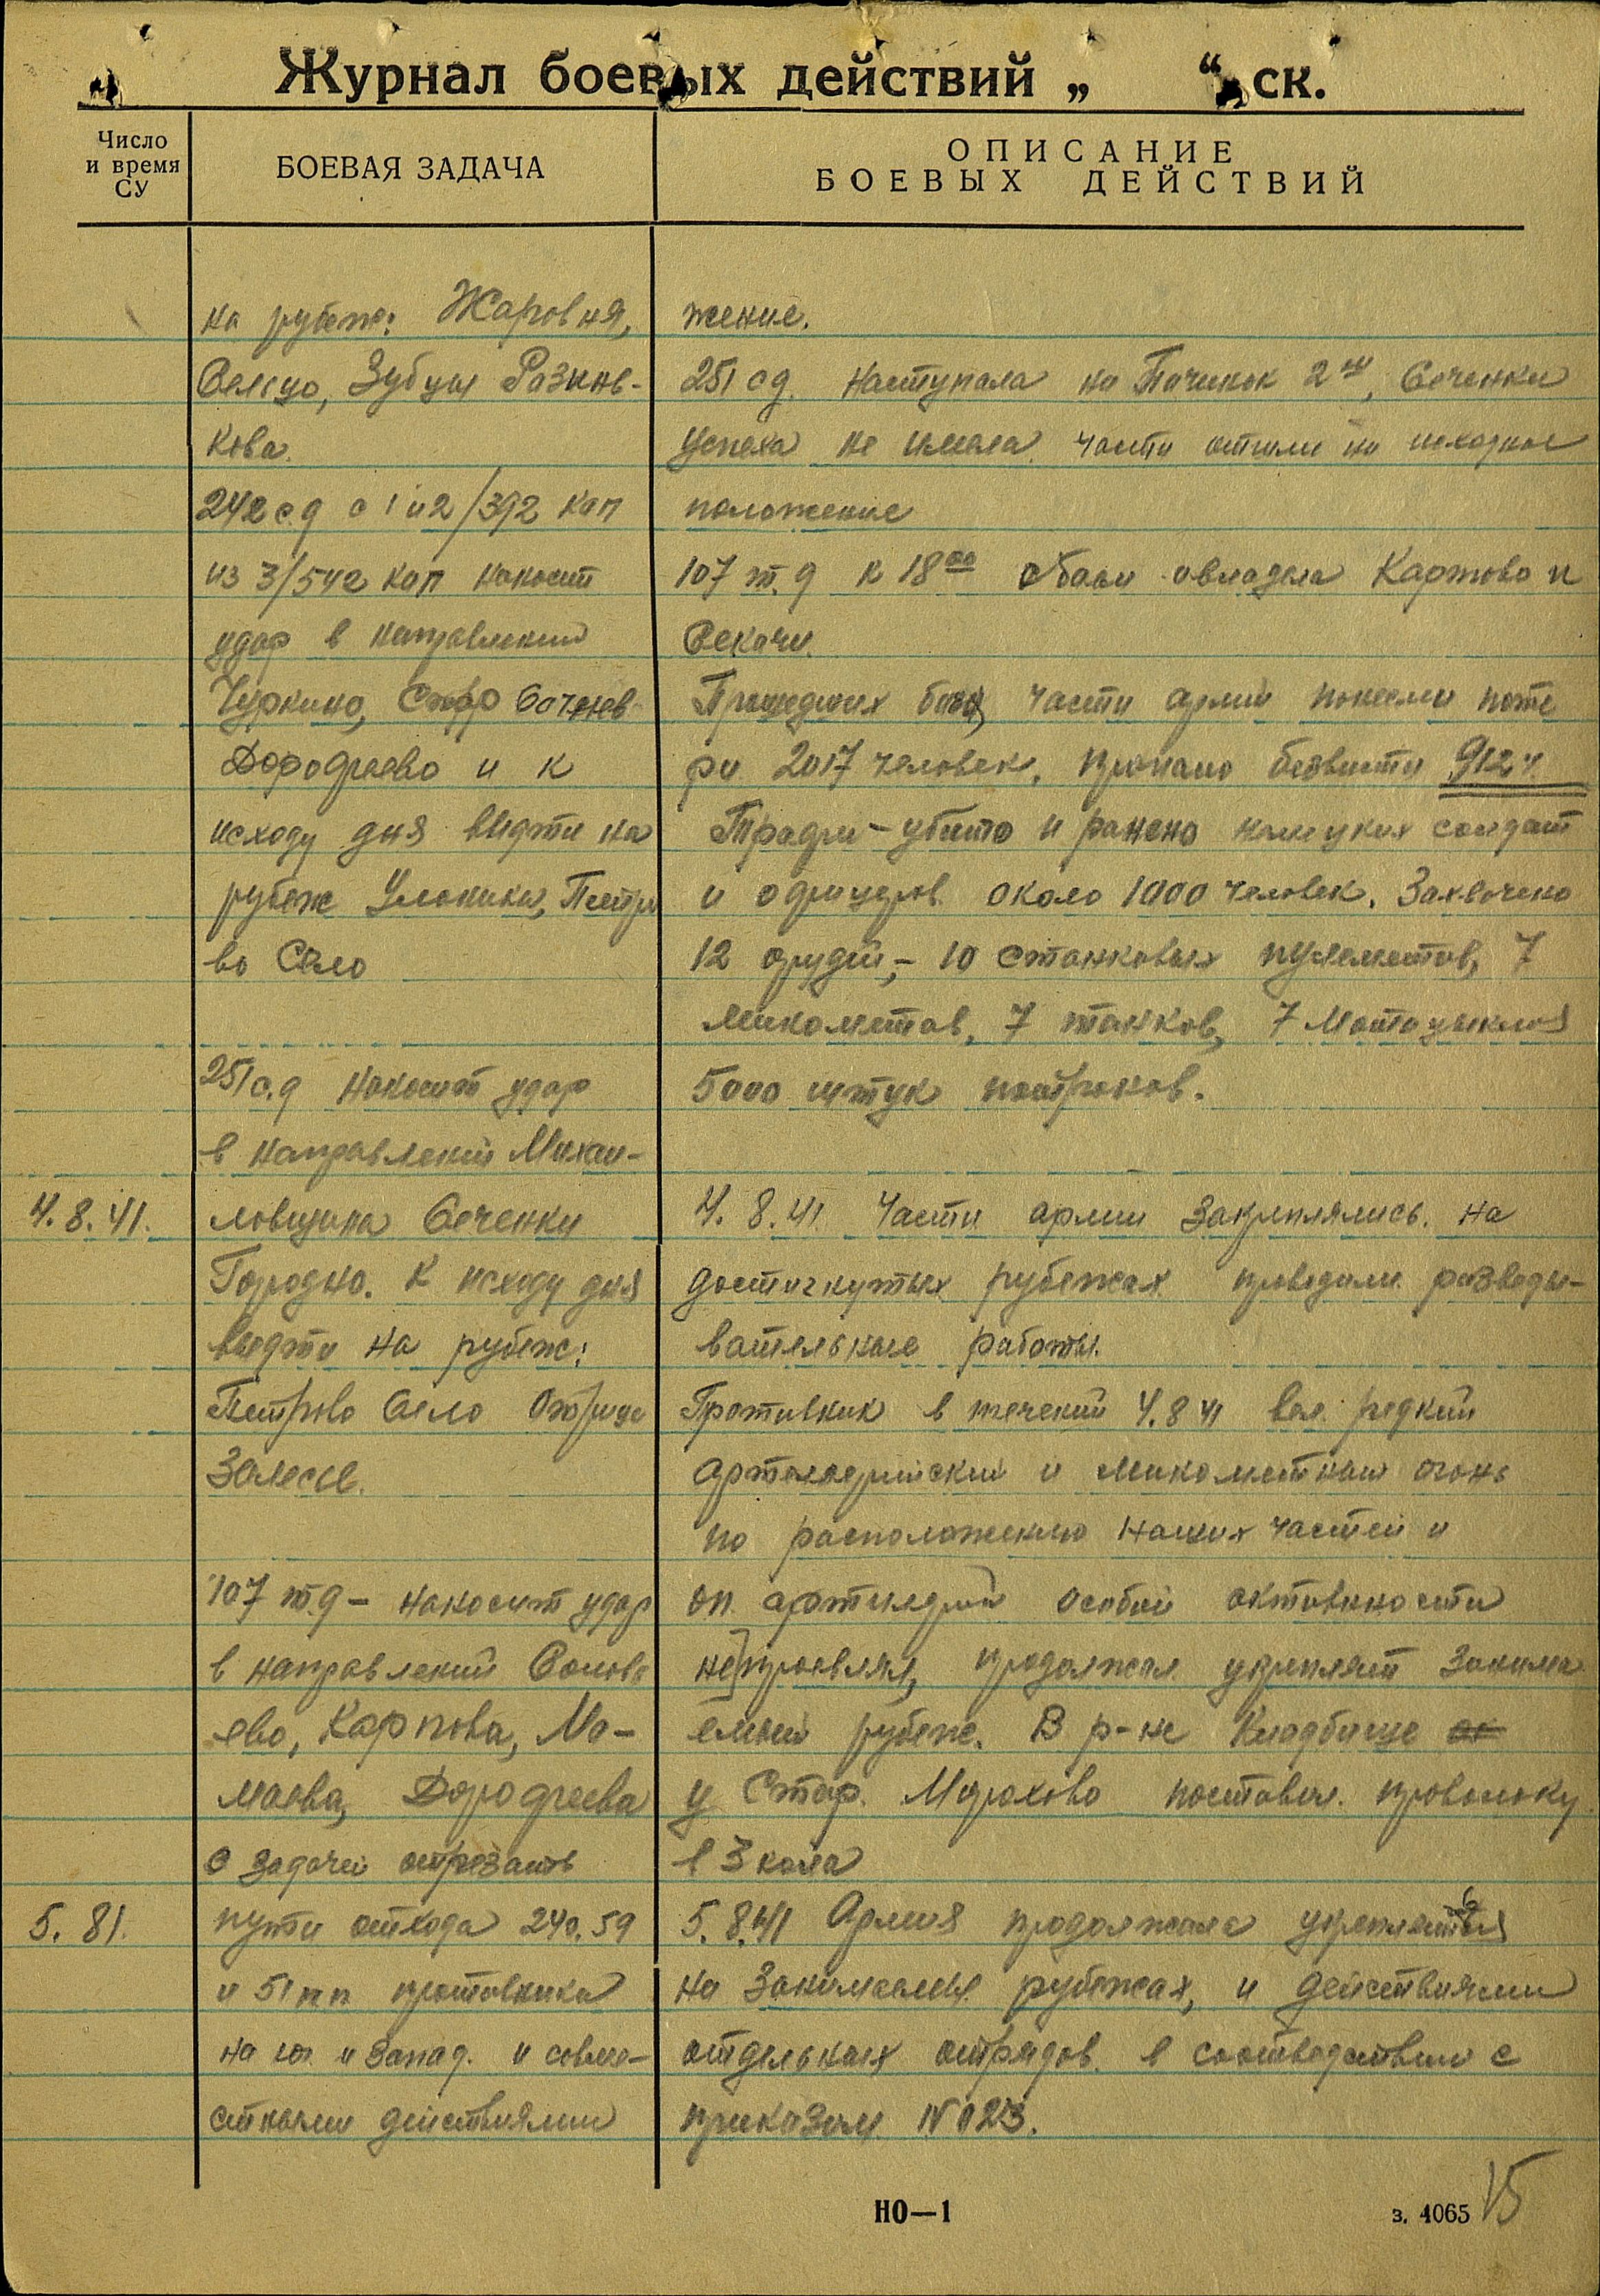 Журнал боевых действий „ “ ск.
Число
и время
СУ
БОЕВАЯ ЗАДАЧА
ОПИСАНИЕ
БОЕВЫХ ДЕЙСТВИЙ
на рубеж: Жаровня,
Сельцо, Зубцы Разинь-
кова.
242 с.д с 1 и 2/392 кап
из 3/542 кап наносит
удар в направлении
Чуркино, Стар
Дорофеево и к
исходу дня выдти на
рубеж Петро
во Село
251 с.д наносит удар
в направлений Михай-
4.8.41.
ловщина Сеченки
Городно. К исходу дня
выдти на рубеж:
Петрово Село Отрица
Залесье.
107 т.д – наносит удар
в направлений Соловь
ево, Карпова, Ма-
маева, Дорофеева
с задачей отрезать
5. 81.
пути отхода 240. 59
и 51 пп противника
на юг. и запад. и совме-
стными действиями
жение.
251 сд. наступала на Починок 2ый, Сеченки
успеха не имела. части отошли на исходное
положение
107 т.д к 18 00 с боем овладела Карпово и
Секачи.
Прошедших боях части армии понесли поте
ри 2017 человек. пропало безвести 912 ч.
Трофеи – убито и ранено немецких солдат
и офицеров около 1000 человек. Захвачено
12 орудий, – 10 станковых пулеметов, 7
минометов, 7 танков, 7 Мотоцыклов
5000 штук патронов.
4. 8. 41 Части армии закреплялись. на
достигнутых рубежах проводили разведы-
вательные работы.
Противник в течений 4.8 41 вел редкий
артиллерийский и минометный огонь
по расположению наших частей и
оп. артилерий особой активности
не проявлял, продолжал укреплять занима
емый рубеж. В р-не Кладбище
у Стар. Морохово поставил проволоку
в 3 кола
5. 8.41 Армия продолжала укрепляться
на занимаемых рубежах, и действиями
отдельных отрядов в соответствии с
приказом N 023.
НО—1
з. 4065
15